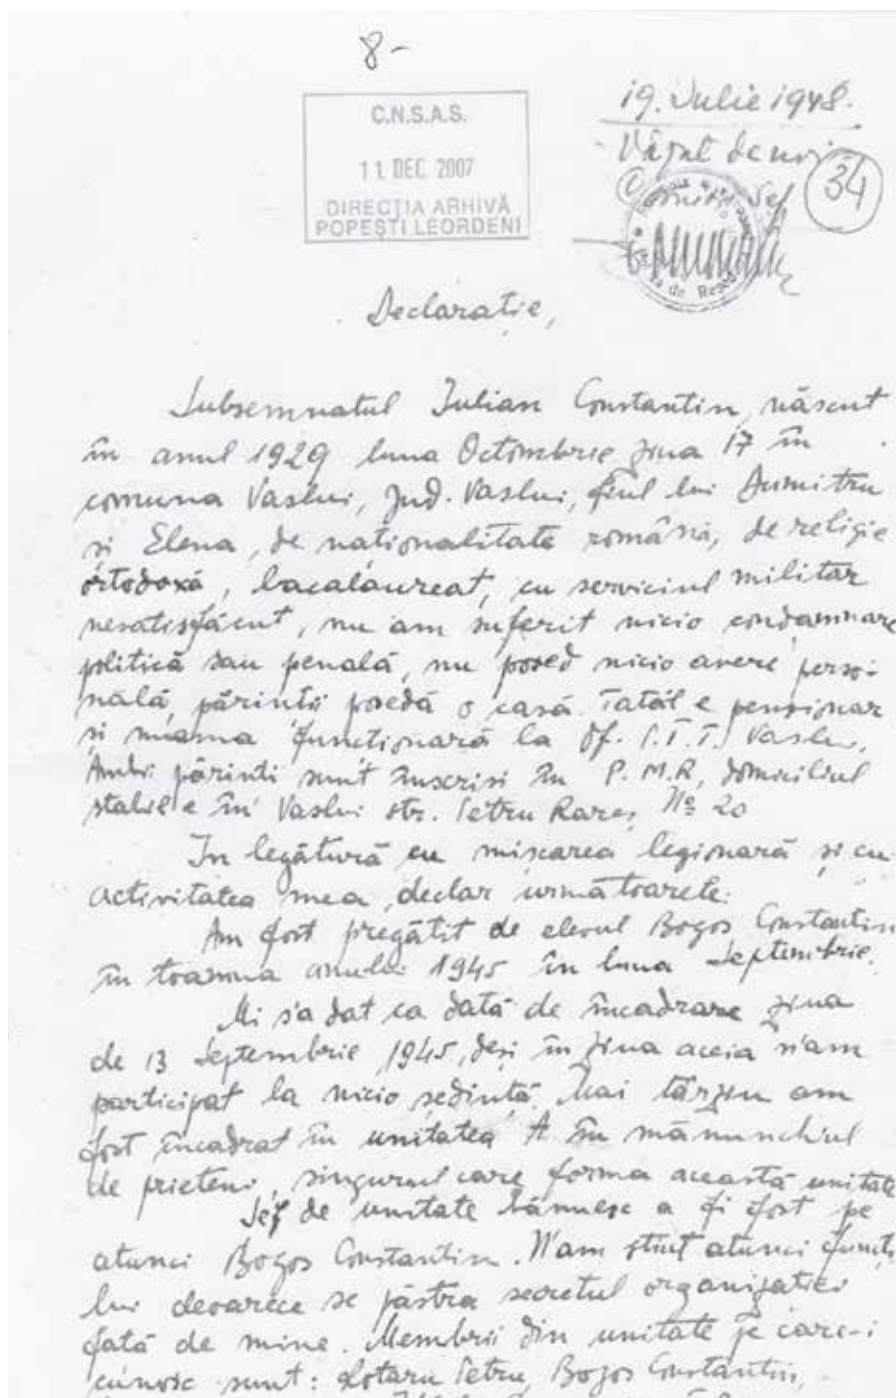 8-
C.N.S.A.S.
11 DEC 2007
DIRECȚIA ARHIVĂ
POPEȘTI LEORDENI
19. Iulie 1948.
Văzut de noi
34
Declarație,
Subsemnatul Iulian Constantin, născut
în anul 1929 luna Octombrie ziua 17 în
comuna Vaslui, Jud. Vaslui, fiul lui Dumitru
și Elena, de naționalitate română, de religie
ortodoxă, bacalaureat, cu serviciul militar
nesatisfăcut, nu am suferit nicio condamnare
politică sau penală, nu posed nicio avere perso-
nală, părinții posedă o casă. Tatăl e pensionar
și mama funcționară la Of. P.T.T. Vaslui.
Ambii părinți sunt înscriși în P.M.R, domiciliul
stabil e în Vaslui str. Petru Rareș No 20
In legătură cu mișcarea legionară și cu
activitatea mea, declar următoarele:
Am fost pregătit de elevul Bogos Constantin
în toamna anului 1945 în luna Septembrie.
Mi s'a dat ca dată de încadrare ziua
de 13 Septembrie 1945, deși în ziua aceia n'am
participat la nicio ședință. Mai târziu am
fost încadrat în unitatea A în mănunchiul
de prieteni, singurul care forma această unitate
Șef de unitate bănuesc a fi fost pe
atunci Bogos Constantin. N'am știut atunci
lui deoarece se păstra secretul organizației
față de mine. Membrii din unitate pe care-i
cunosc sunt: Lotaru Petru Bogos Constantin,